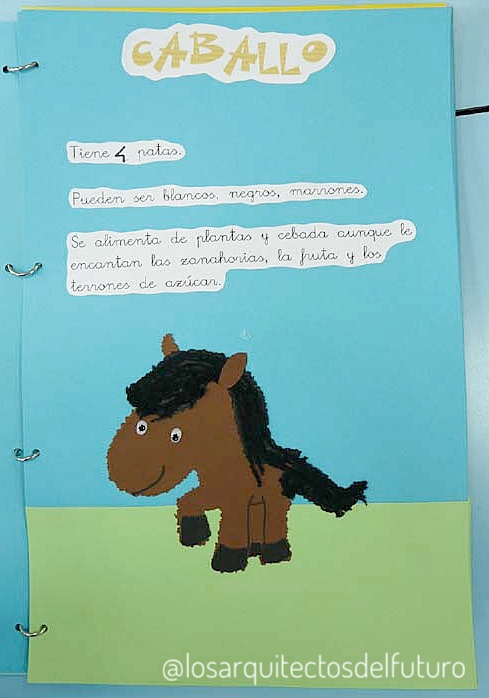 CABALLO
Tiene 4 patas.
Pueden ser blancos, negros, marrones.
Se alimenta de plantas y cebada aunque le
encantan las zanahorias, la fruta y los
terrones de azúcar.
@losarquitectosdelfuturo